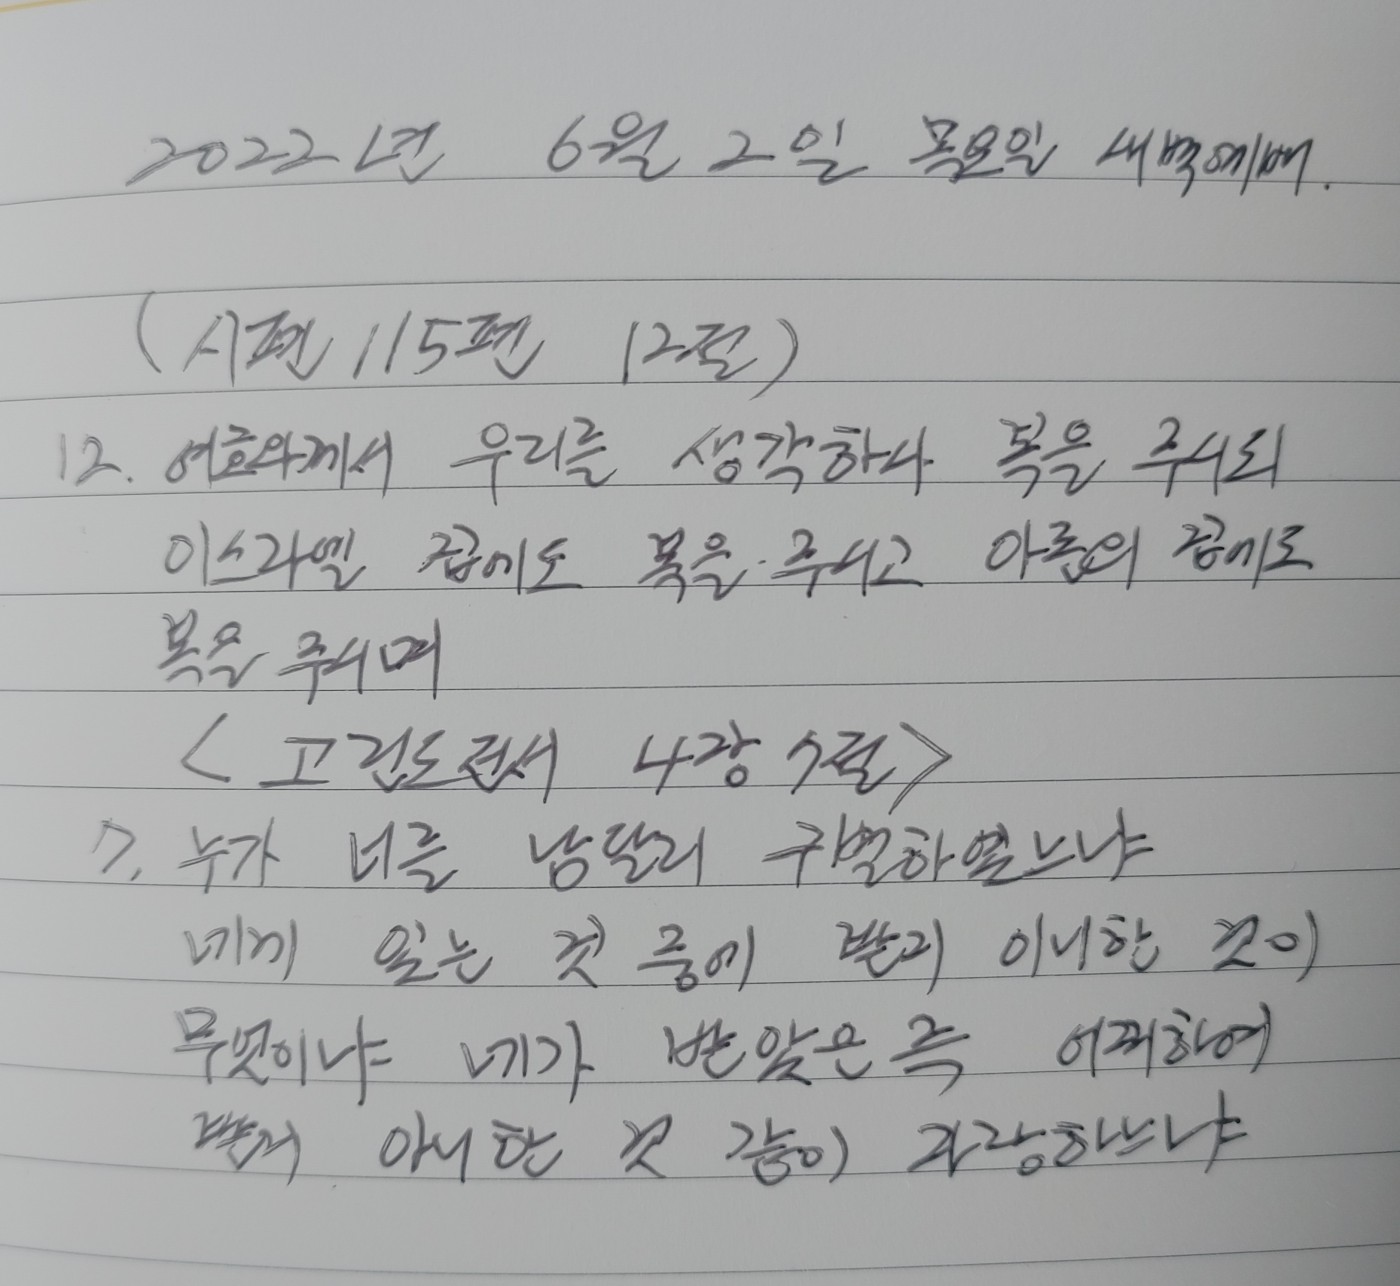 2022년 6월 2일 목요일 새벽예배.
(시편 115편 12절)
12. 여호와께서 우리를 생각하사 복을 주시되
이스라엘 집에도 복을 주시고 아론의 집에도
복을 주시며
< 고린도전서 4장 7절>
7. 누가 너를 남달리 구별하였느냐
네게 있는 것 중에 받지 아니한 것이
무엇이냐 네가 받았은즉 어찌하여
받지 아니한 것 같이 자랑하느냐